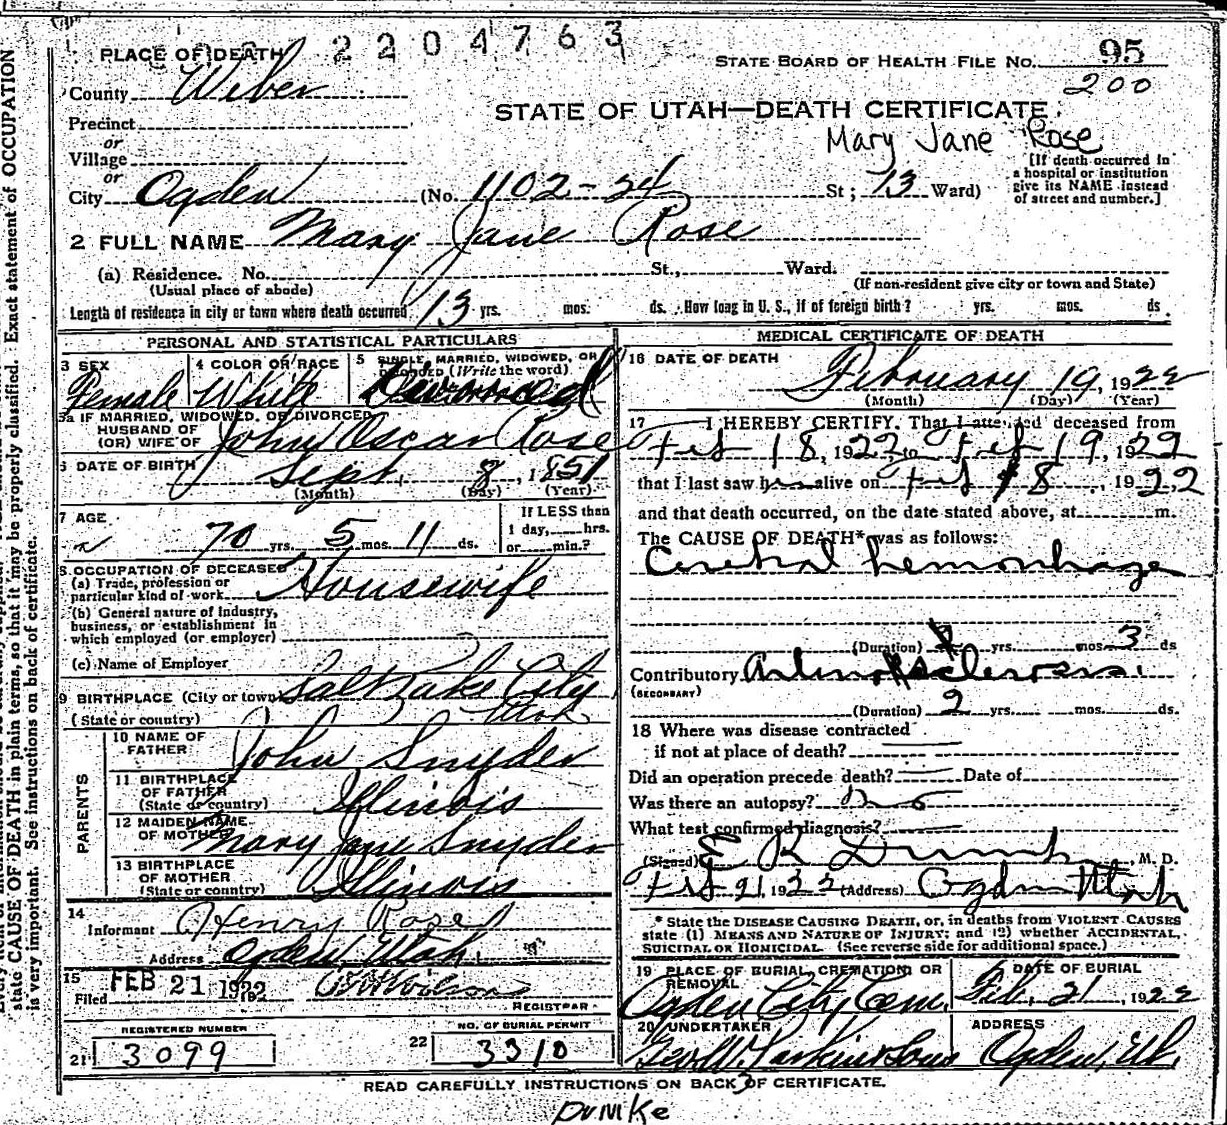 2204763
PLACE OF DEATH
STATE BOARD OF HEALTH FILE No. 95
200
County Weber
STATE OF UTAH—DEATH CERTIFICATE
Mary Jane Rose
Precinct
or
Village
or
City Ogden (No. 1102-24 St; 13 Ward)
[If death occurred in
a hospital or institution
give its NAME instead
of street and number.]
2 FULL NAME Mary Jane Rose
(a) Residence. No. St., Ward.
(Usual place of abode) (If non-resident give city or town and State)
Length of residence in city or town where death occurred 13 yrs. mos. ds. How long in U. S., if of foreign birth? yrs. mos. ds.
PERSONAL AND STATISTICAL PARTICULARS
3 SEX Female
4 COLOR OR RACE White
5 SINGLE, MARRIED, WIDOWED, OR
DIVORCED (Write the word)
Divorced
5a IF MARRIED, WIDOWED, OR DIVORCED
HUSBAND OF
(OR) WIFE OF John Oscar Rose
6 DATE OF BIRTH Sept. 8, 1851
(Month) (Day) (Year)
7 AGE
70 yrs. 5 mos. 11 ds.
If LESS than
1 day, hrs.
or min.?
8 OCCUPATION OF DECEASED
(a) Trade, profession or
particular kind of work Housewife
(b) General nature of industry,
business, or establishment in
which employed (or employer)
(c) Name of Employer
9 BIRTHPLACE (City or town) Salt Lake City
(State or country) Utah
PARENTS
10 NAME OF
FATHER John Snyder
11 BIRTHPLACE
OF FATHER
(State or country) Illinois
12 MAIDEN NAME
OF MOTHER Mary Jane Snyder
13 BIRTHPLACE
OF MOTHER
(State or country) Illinois
14
Informant Henry Rose
Address Ogden Utah.
15
Filed FEB 21 1922
REGISTRAR
REGISTERED NUMBER
21 3099
NO. OF BURIAL PERMIT
22 3310
MEDICAL CERTIFICATE OF DEATH
16 DATE OF DEATH
February 19, 1922
(Month) (Day) (Year)
17 I HEREBY CERTIFY. That I attended deceased from
Feb 18, 1922, to Feb 19, 1922
that I last saw her alive on Feb 18, 1922
and that death occurred, on the date stated above, at m.
The CAUSE OF DEATH* was as follows:
Cerebral hemorrhage
(Duration) yrs. mos. 3 ds
Contributory Arteriosclerosis
(SECONDARY)
(Duration) 2 yrs. mos. ds.
18 Where was disease contracted
if not at place of death?
Did an operation precede death? Date of
Was there an autopsy? no
What test confirmed diagnosis?
(Signed) E R Dumke, M. D.
Feb 21, 1922 (Address) Ogden Utah
* State the DISEASE CAUSING DEATH, or, in deaths from VIOLENT CAUSES
state (1) MEANS AND NATURE OF INJURY; and (2) whether ACCIDENTAL,
SUICIDAL OR HOMICIDAL. (See reverse side for additional space.)
19 PLACE OF BURIAL, CREMATION, OR
REMOVAL
Ogden City Cem.
DATE OF BURIAL
Feb. 21, 1922
20 UNDERTAKER
Geo. W. Larkin & Sons
ADDRESS
Ogden, Ut.
READ CAREFULLY INSTRUCTIONS ON BACK OF CERTIFICATE.
DUMKe
state CAUSE OF DEATH in plain terms, so that it may be properly classified. Exact statement of OCCUPATION
is very important. See instructions on back of certificate.